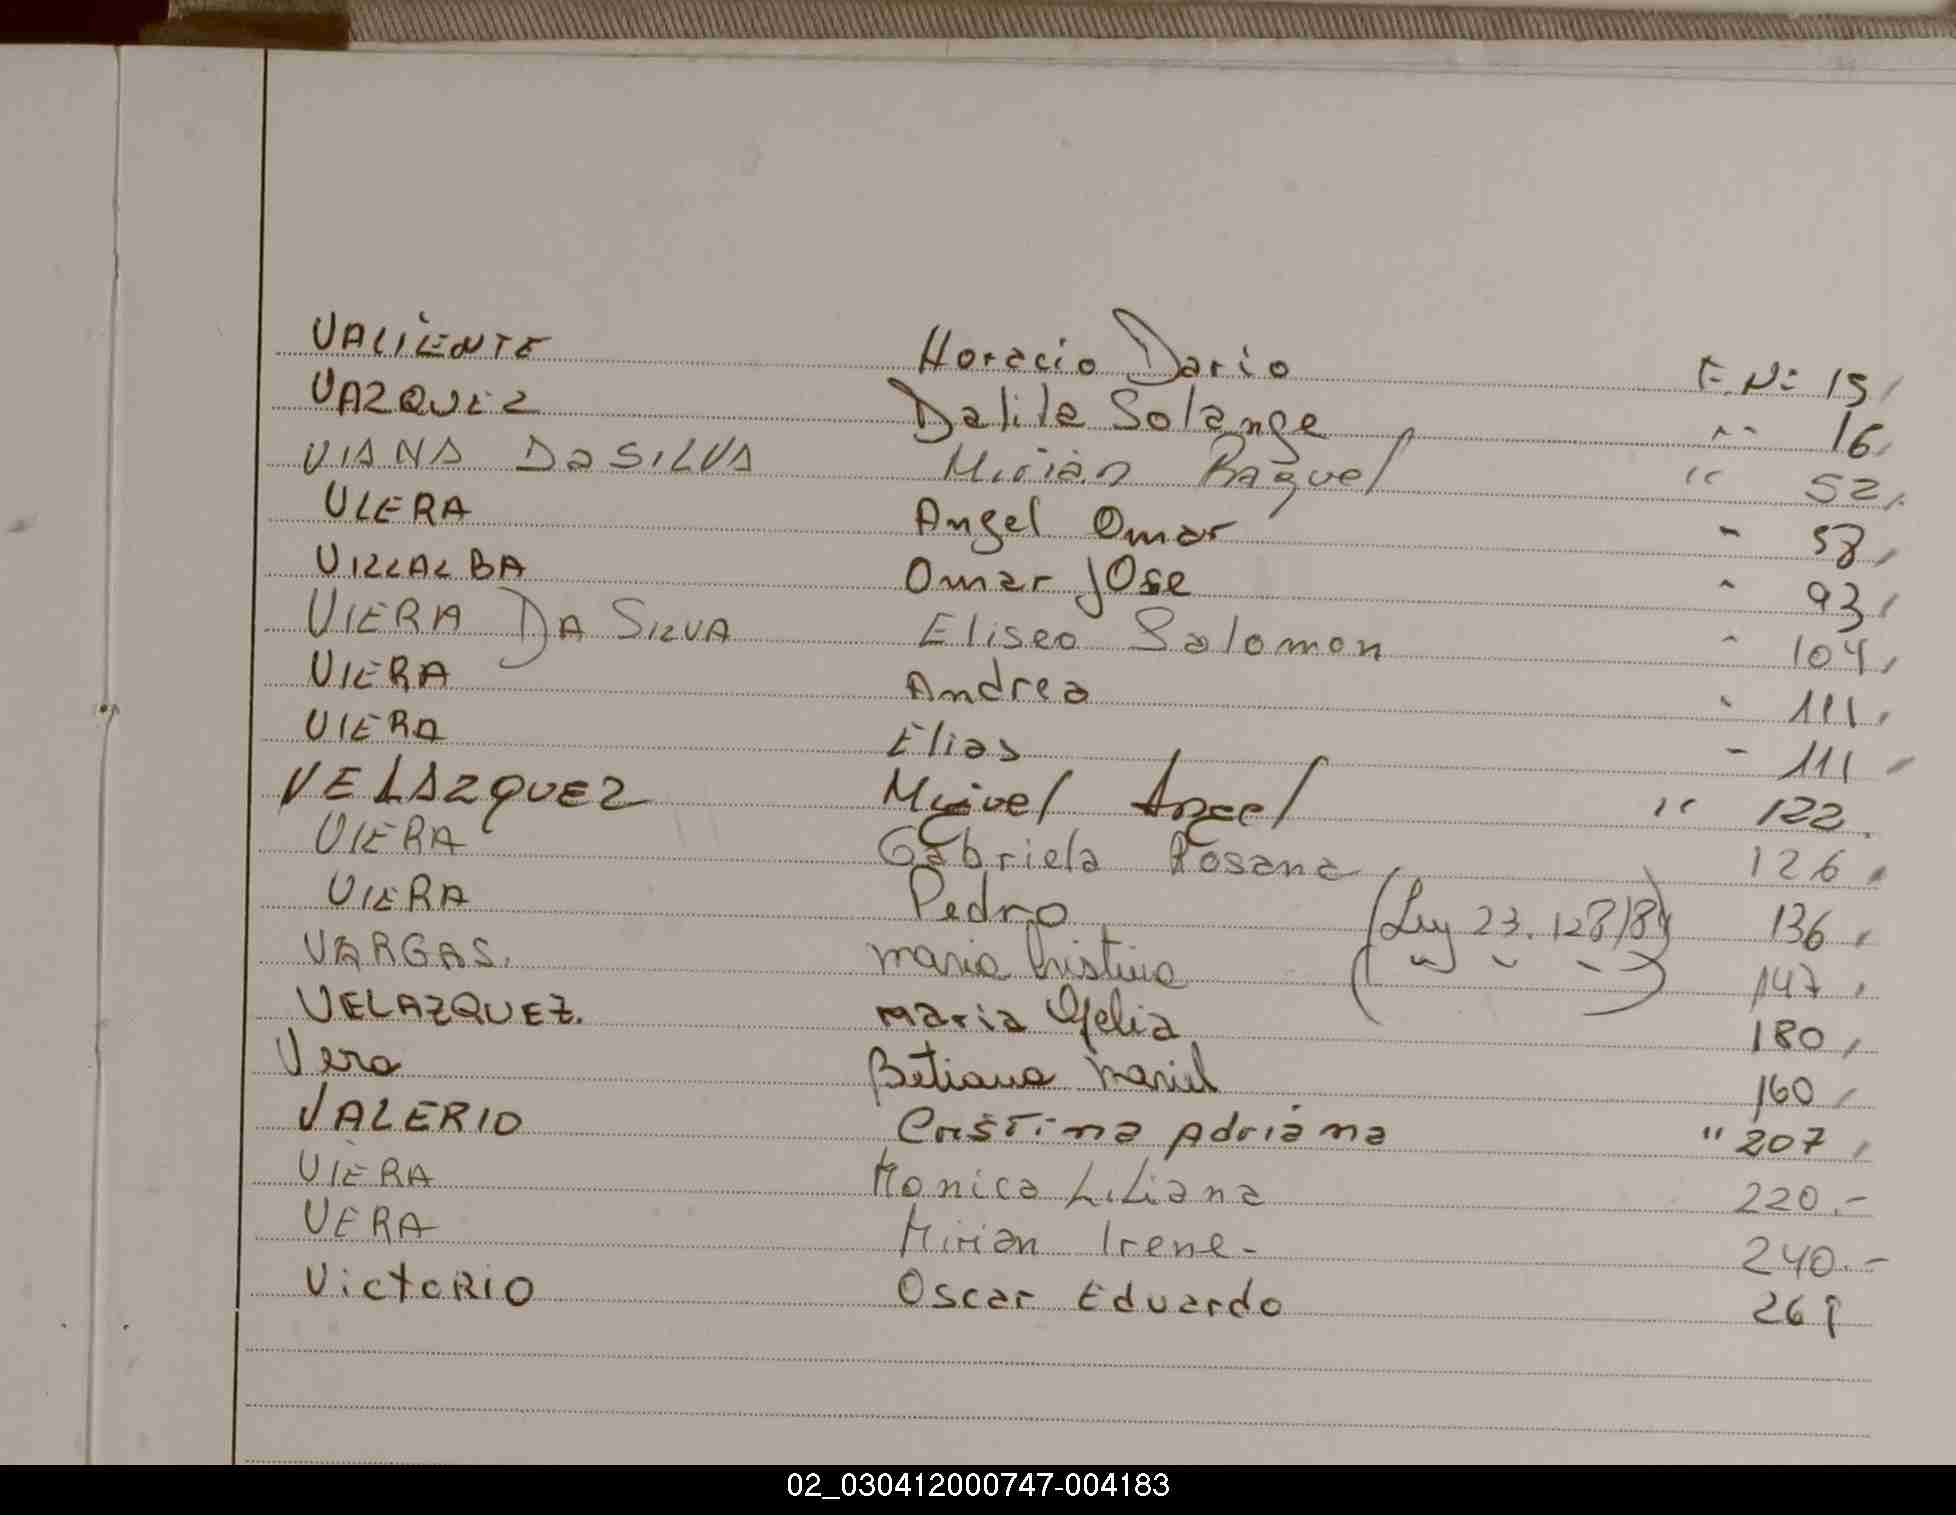 VALIENTE Horacio Dario F. Nº 15,
VAZQUEZ Dalila Solange " 16,
VIANA Da SILVA Mirian Raquel " 52,
VIERA Angel Omar " 58,
VILLALBA Omar José " 93,
VIERA DA SILVA Eliseo Salomon " 104,
VIERA Andrea " 111,
VIERA Elias " 111,
VELAZQUEZ Miguel Angel " 122.
VIERA Gabriela Rosana 126,
VIERA Pedro (Ley 23.128/84) 136,
VARGAS. Maria Cristina ( " " " ) 147,
VELAZQUEZ. Maria Ofelia 180,
Vera Betiana Mariel 160,
VALERIO Cristina Adriana " 207,
VIERA Monica Liliana 220.-
VERA Mirian Irene- 240.-
VictoRIO Oscar Eduardo 261
02_030412000747-004183